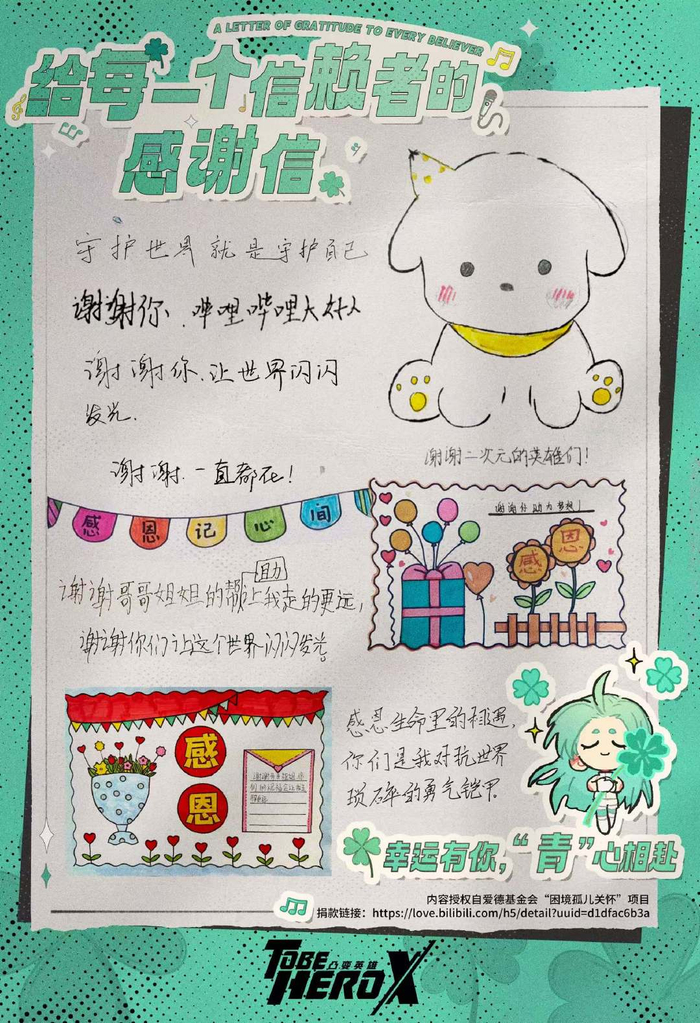 A LETTER OF GRATITUDE TO EVERY BELIEVER
给每一个信赖者的
感谢信
守护世界就是守护自己
谢谢你、哔哩哔哩大好人
谢谢你、让世界闪闪
发光.
谢谢、一直都在!
谢谢二次元的英雄们!
感恩记心间
谢谢你助力梦想!
感恩
谢谢哥哥姐姐的帮助让我走的更远,
谢谢你们让这个世界闪闪发光。
感恩
感恩生命里的相遇,
你们是我对抗世界
琐碎的勇气铠甲
幸运有你,“青”心相赴
内容授权自爱德基金会“困境孤儿关怀”项目
捐款链接：https://love.bilibili.com/h5/detail?uuid=d1dfac6b3a
TOBE
凸变英雄
HERO X